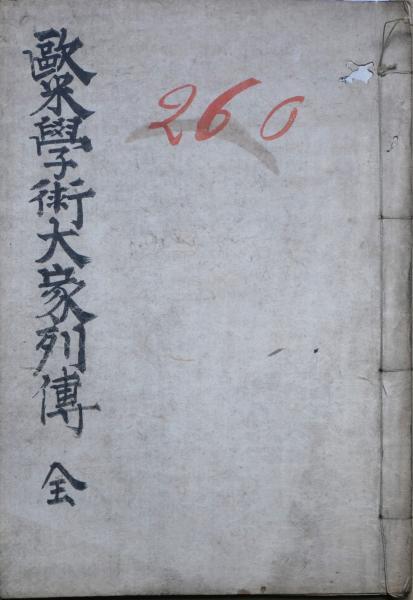 歐米學術大家列傳 全
260